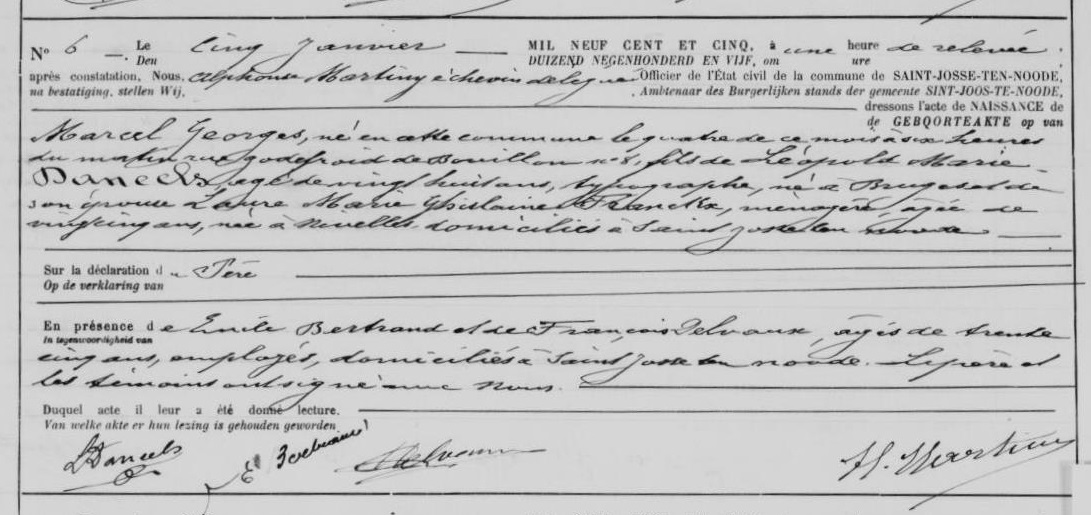 N° 6 Le Cinq Janvier MIL NEUF CENT ET CINQ, à une heure de relevée.
Den DUIZEND NEGENHONDERD EN VIJF, om ure
après constatation, Nous, Alphonse Martiny échevin délégué Officier de l'État civil de la commune de SAINT-JOSSE-TEN-NOODE,
na bestatiging, stellen Wij, Ambtenaar des Burgerlijken stands der gemeente SINT-JOOS-TE-NOODE,
dressons l'acte de NAISSANCE de
de GEBOORTEAKTE op van
Marcel Georges, né en cette commune le quatre de ce mois à six heures
du matin rue godefroid de Bouillon n° 8, fils de Léopold Marie
Daneels, agé de vingt huit ans, typographe, né à Bruges et de
son épouse Laure Marie Ghislaine Franckx, ménagère, agée de
vingt cinq ans, née à Nivelles, domiciliés à Saint Josse ten noode
Sur la déclaration du Père
Op de verklaring van
En présence de Emile Bertrand et de François Delvaux, agés de trente
In tegenwoordigheid van
cinq ans, employés, domiciliés à Saint Josse ten noode. Le père et
les témoins ont signé avec Nous.
Duquel acte il leur a été donné lecture.
Van welke akte er hun lezing is gehouden geworden
LDaneels Delvaux Martiny